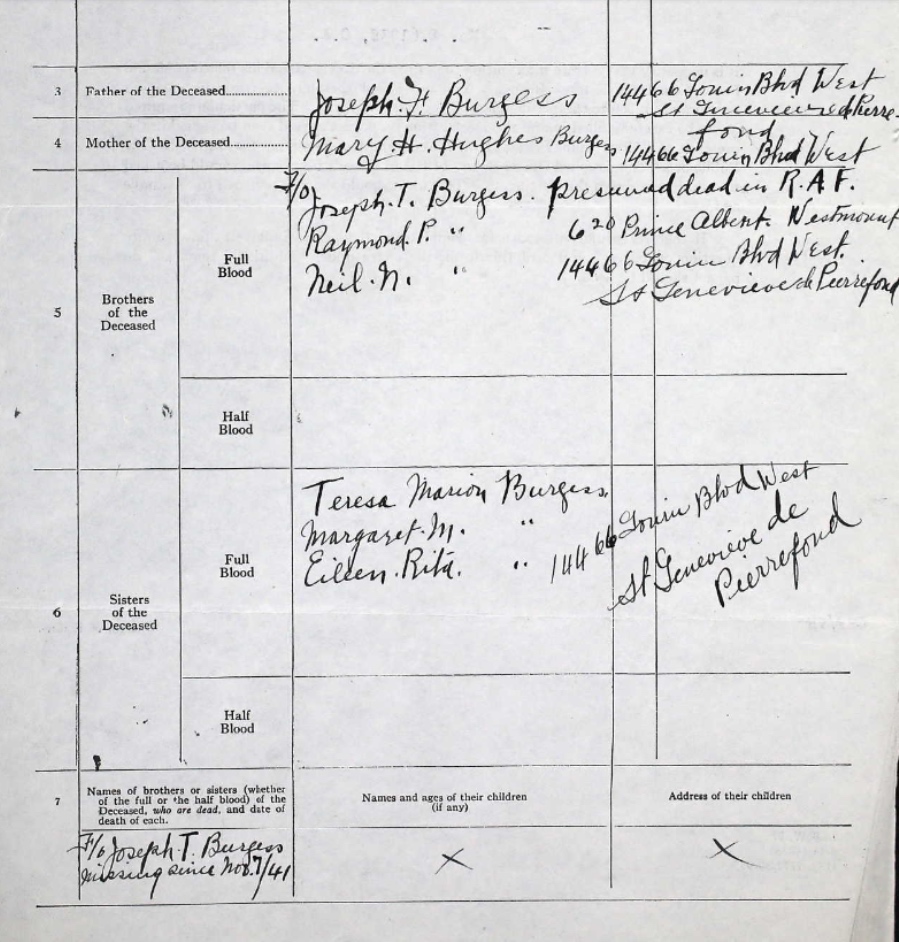 3 Father of the Deceased.................. Joseph. H. Burgess 14466 Gouin Blvd West
St Genevieve de Pierre-
fond
4 Mother of the Deceased................. Mary H. Hughes Burgess 14466 Gouin Blvd West
5 Brothers of the Deceased
Full Blood
F/O Joseph. T. Burgess. presumed dead in R.A.F.
Raymond. P. " 620 Prince Albert. Westmount
Neil. N. " 14466 Gouin Blvd West.
St Genevieve de Pierrefond
Half Blood
6 Sisters of the Deceased
Full Blood
Teresa Marion Burgess.
Margaret. M. " 14466 Gouin Blvd West
Eileen. Rita. " St Genevieve de
Pierrefond
Half Blood
7 Names of brothers or sisters (whether
of the full or the half blood) of the
Deceased, who are dead, and date of
death of each.
Names and ages of their children
(if any)
Address of their children
F/O Joseph. T. Burgess X X
missing since Nov. 7/41